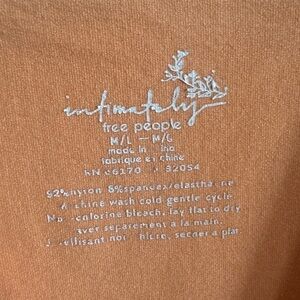 intimately
free people
M/L — M/G
made in
fabrique en chine
RN 66170 32054
92% nylon 8% spandex/elasthanne
wash cold gentle cycle
chlorine bleach. lay flat to dry
separement a la main.
secher a plat